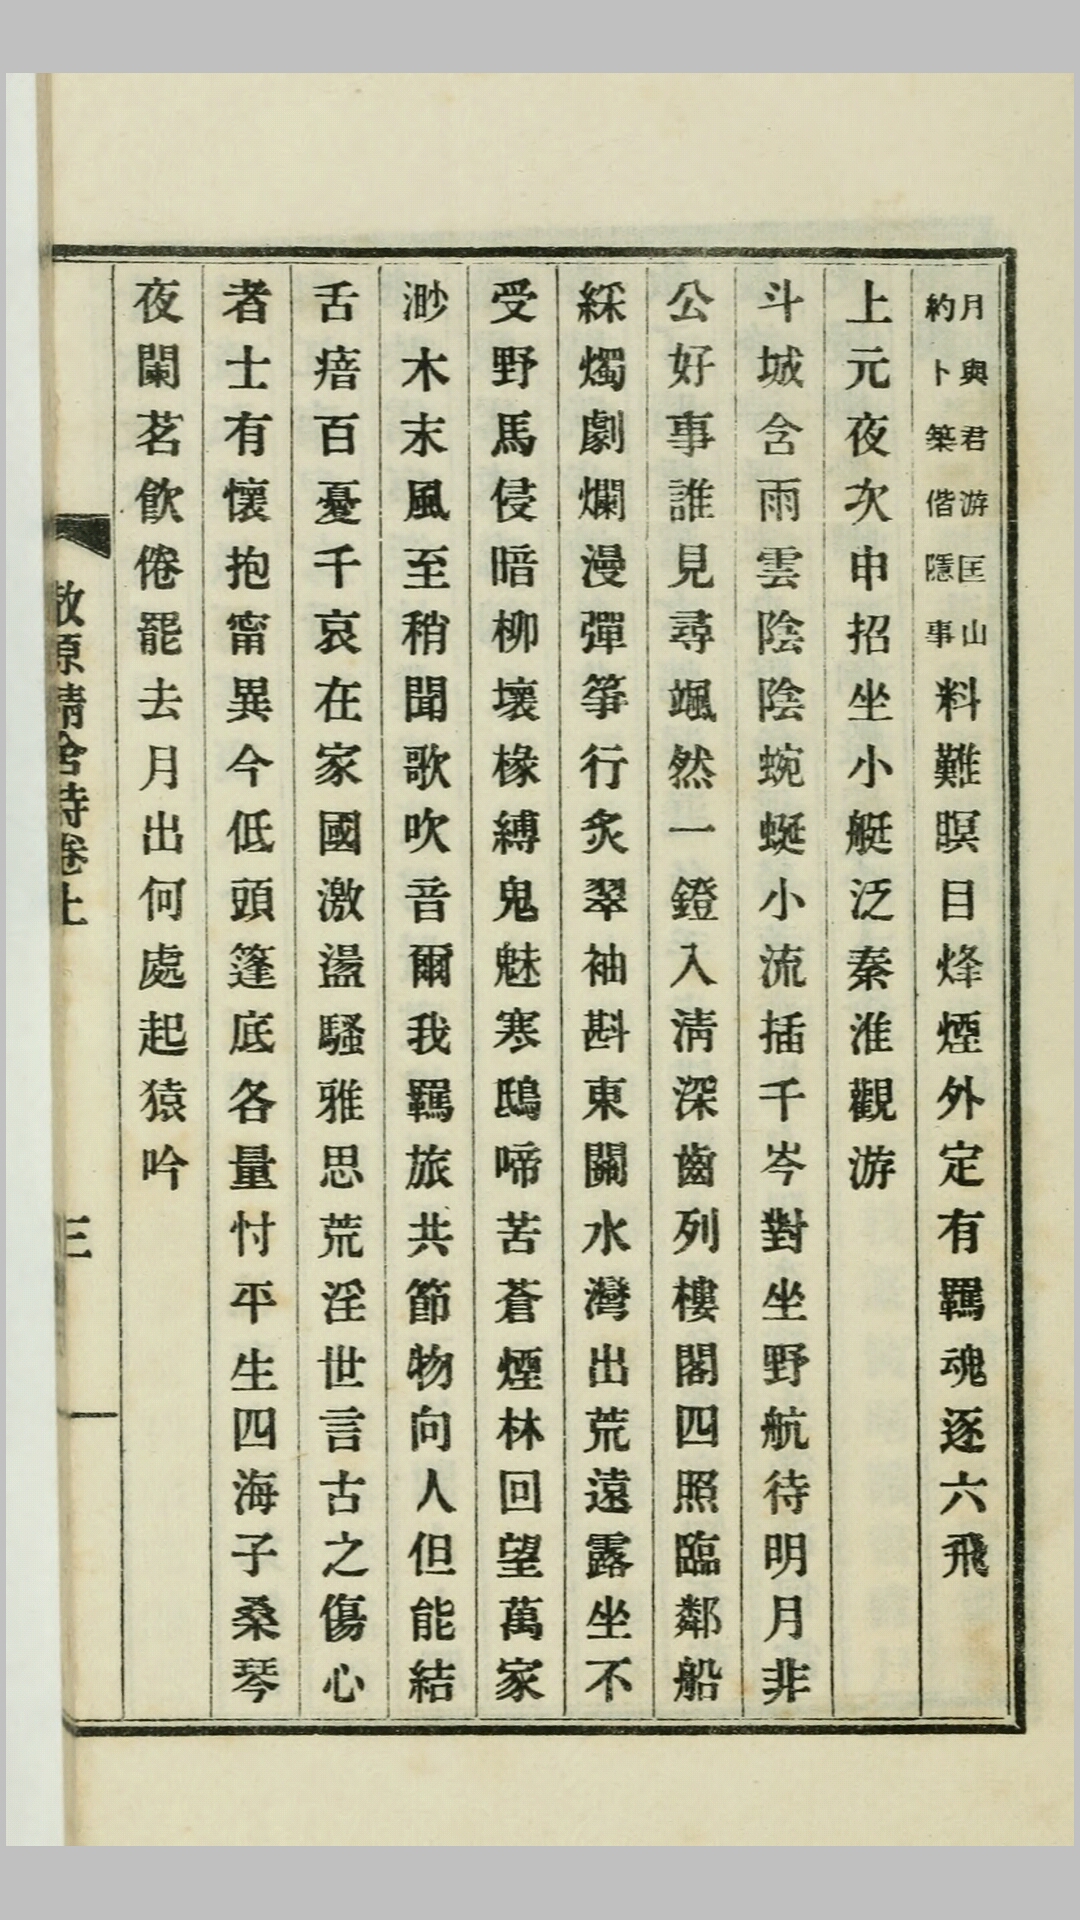 月與君游匡山
約卜築偕隱事
料難瞑目烽煙外定有羈魂逐六飛
上元夜次申招坐小艇泛秦淮觀游
斗城含雨雲陰陰蜿蜒小流插千岑對坐野航待明月非
公好事誰見尋颯然一鐙入淸深齒列樓閣四照臨鄰船
綵燭劇爛漫彈箏行炙翠袖斟東關水灣出荒遠露坐不
受野馬侵暗柳壞椽縛鬼魅寒鴟啼苦蒼煙林回望萬家
渺木末風至稍聞歌吹音爾我羈旅共節物向人但能結
舌瘖百憂千哀在家國激盪騷雅思荒淫世言古之傷心
者士有懷抱甯異今低頭篷底各量忖平生四海子桑琴
夜闌茗飮倦罷去月出何處起猿吟
散原精舍詩卷上
三